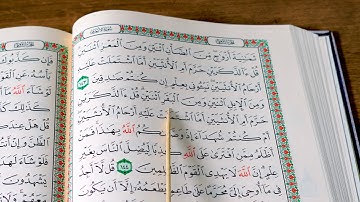 ثَمَٰنِيَةَ أَزْوَٰجٍ مِّنَ ٱلضَّأْنِ ٱثْنَيْنِ وَمِنَ ٱلْمَعْزِ ٱثْنَيْنِ
قُلْ ءَآلذَّكَرَيْنِ حَرَّمَ أَمِ ٱلْأُنثَيَيْنِ أَمَّا ٱشْتَمَلَتْ عَلَيْهِ
أَرْحَامُ ٱلْأُنثَيَيْنِ نَبِّـُٔونِى بِعِلْمٍ إِن كُنتُمْ صَٰدِقِينَ ١٤٣
وَمِنَ ٱلْإِبِلِ ٱثْنَيْنِ وَمِنَ ٱلْبَقَرِ ٱثْنَيْنِ قُلْ ءَآلذَّكَرَيْنِ
حَرَّمَ أَمِ ٱلْأُنثَيَيْنِ أَمَّا ٱشْتَمَلَتْ عَلَيْهِ أَرْحَامُ ٱلْأُنثَيَيْنِ
أَمْ كُنتُمْ شُهَدَآءَ إِذْ وَصَّىٰكُمُ ٱللَّهُ بِهَٰذَا فَمَنْ
أَظْلَمُ مِمَّنِ ٱفْتَرَىٰ عَلَى ٱللَّهِ كَذِبًا لِّيُضِلَّ ٱلنَّاسَ بِغَيْرِ
عِلْمٍ إِنَّ ٱللَّهَ لَا يَهْدِى ٱلْقَوْمَ ٱلظَّٰلِمِينَ ١٤٤ قُل لَّآ أَجِدُ
فِى مَآ أُوحِىَ إِلَىَّ مُحَرَّمًا عَلَىٰ طَاعِمٍ يَطْعَمُهُۥٓ إِلَّآ أَن يَكُونَ
فَإِن كَذَّبُوكَ
بَأْسُهُۥ عَنِ ٱلْقَوْمِ
لَوْ شَآءَ ٱللَّهُ
قُلْ هَلْ
فَلَوْ شَآءَ
يَشْهَدُونَ